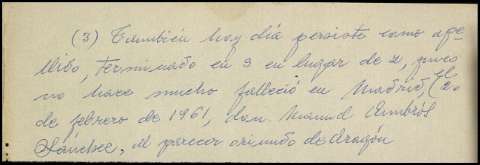 (3) También hoy día persiste como ape-
llido, terminado en s en lugar de z, pues
no hace mucho falleció en Madrid, (el
de febrero de 1961, don Manuel Ambrós
Sánchez, al parecer oriundo de Aragón